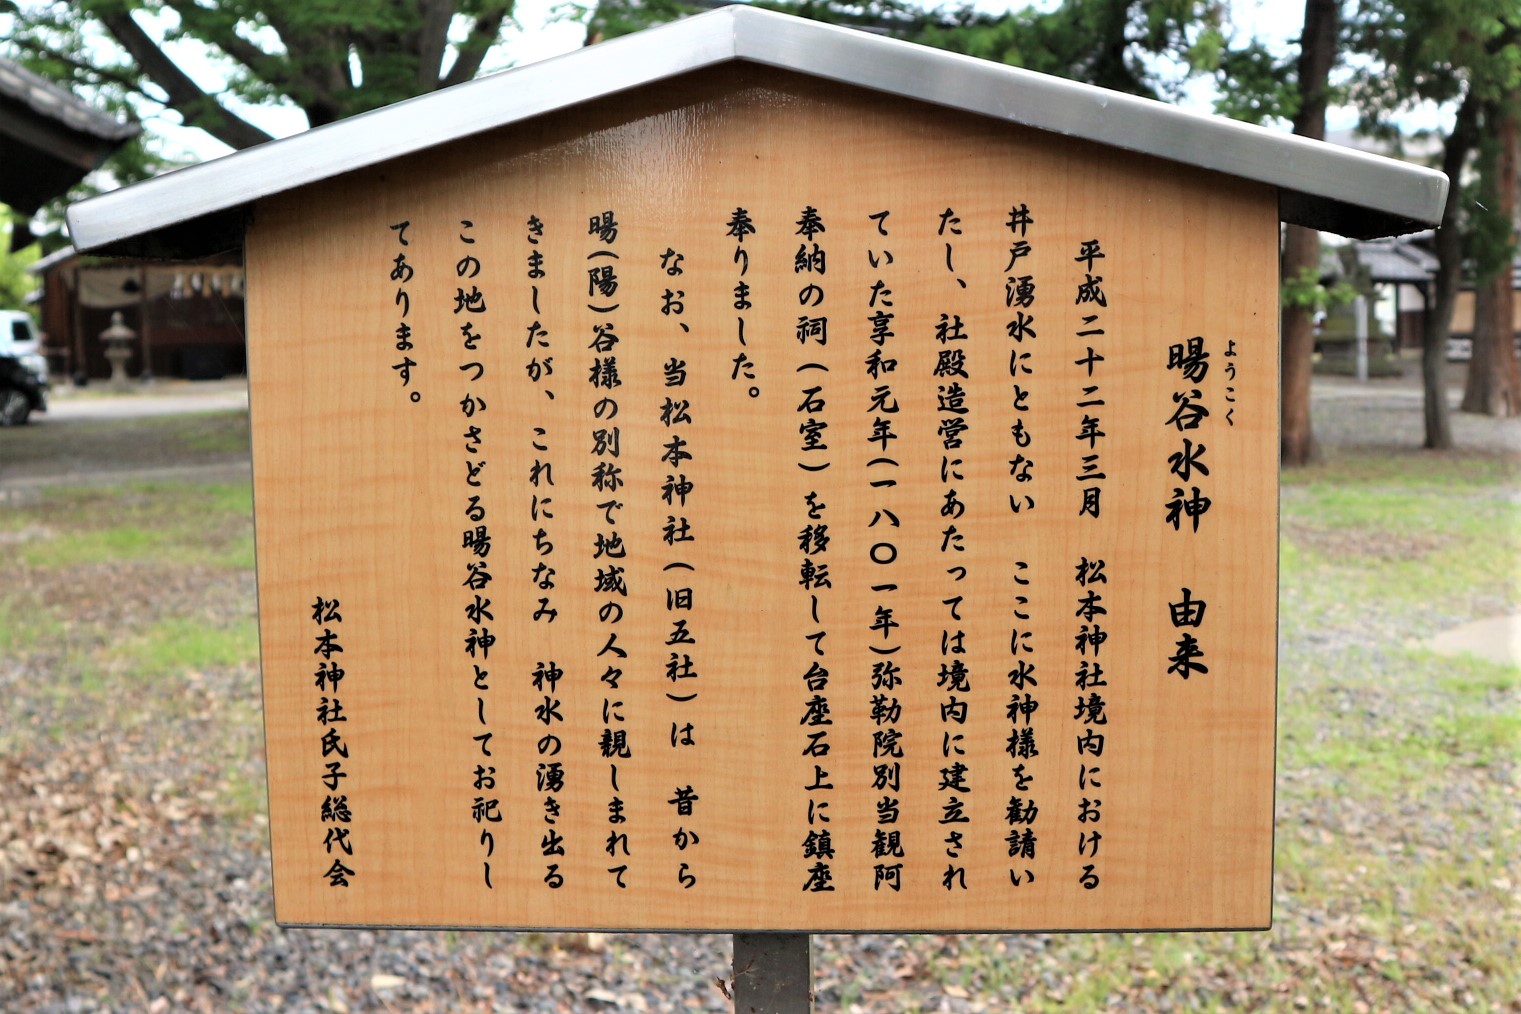 ようこく
暘谷水神　由来
平成二十二年三月　松本神社境内における
井戸湧水にともない　ここに水神様を勧請い
たし、社殿造営にあたっては境内に建立され
ていた享和元年(一八〇一年)弥勒院別当観阿
奉納の祠(石室)を移転して台座石上に鎮座
奉りました。
なお、当松本神社(旧五社)は　昔から
暘(陽)谷様の別称で地域の人々に親しまれて
きましたが、これにちなみ　神水の湧き出る
この地をつかさどる暘谷水神としてお祀りし
てあります。
松本神社氏子総代会